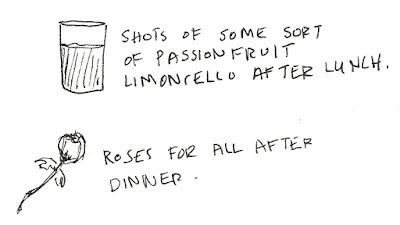 SHOTS OF SOME SORT
OF PASSIONFRUIT
LIMONCELLO AFTER LUNCH.
ROSES FOR ALL AFTER
DINNER.